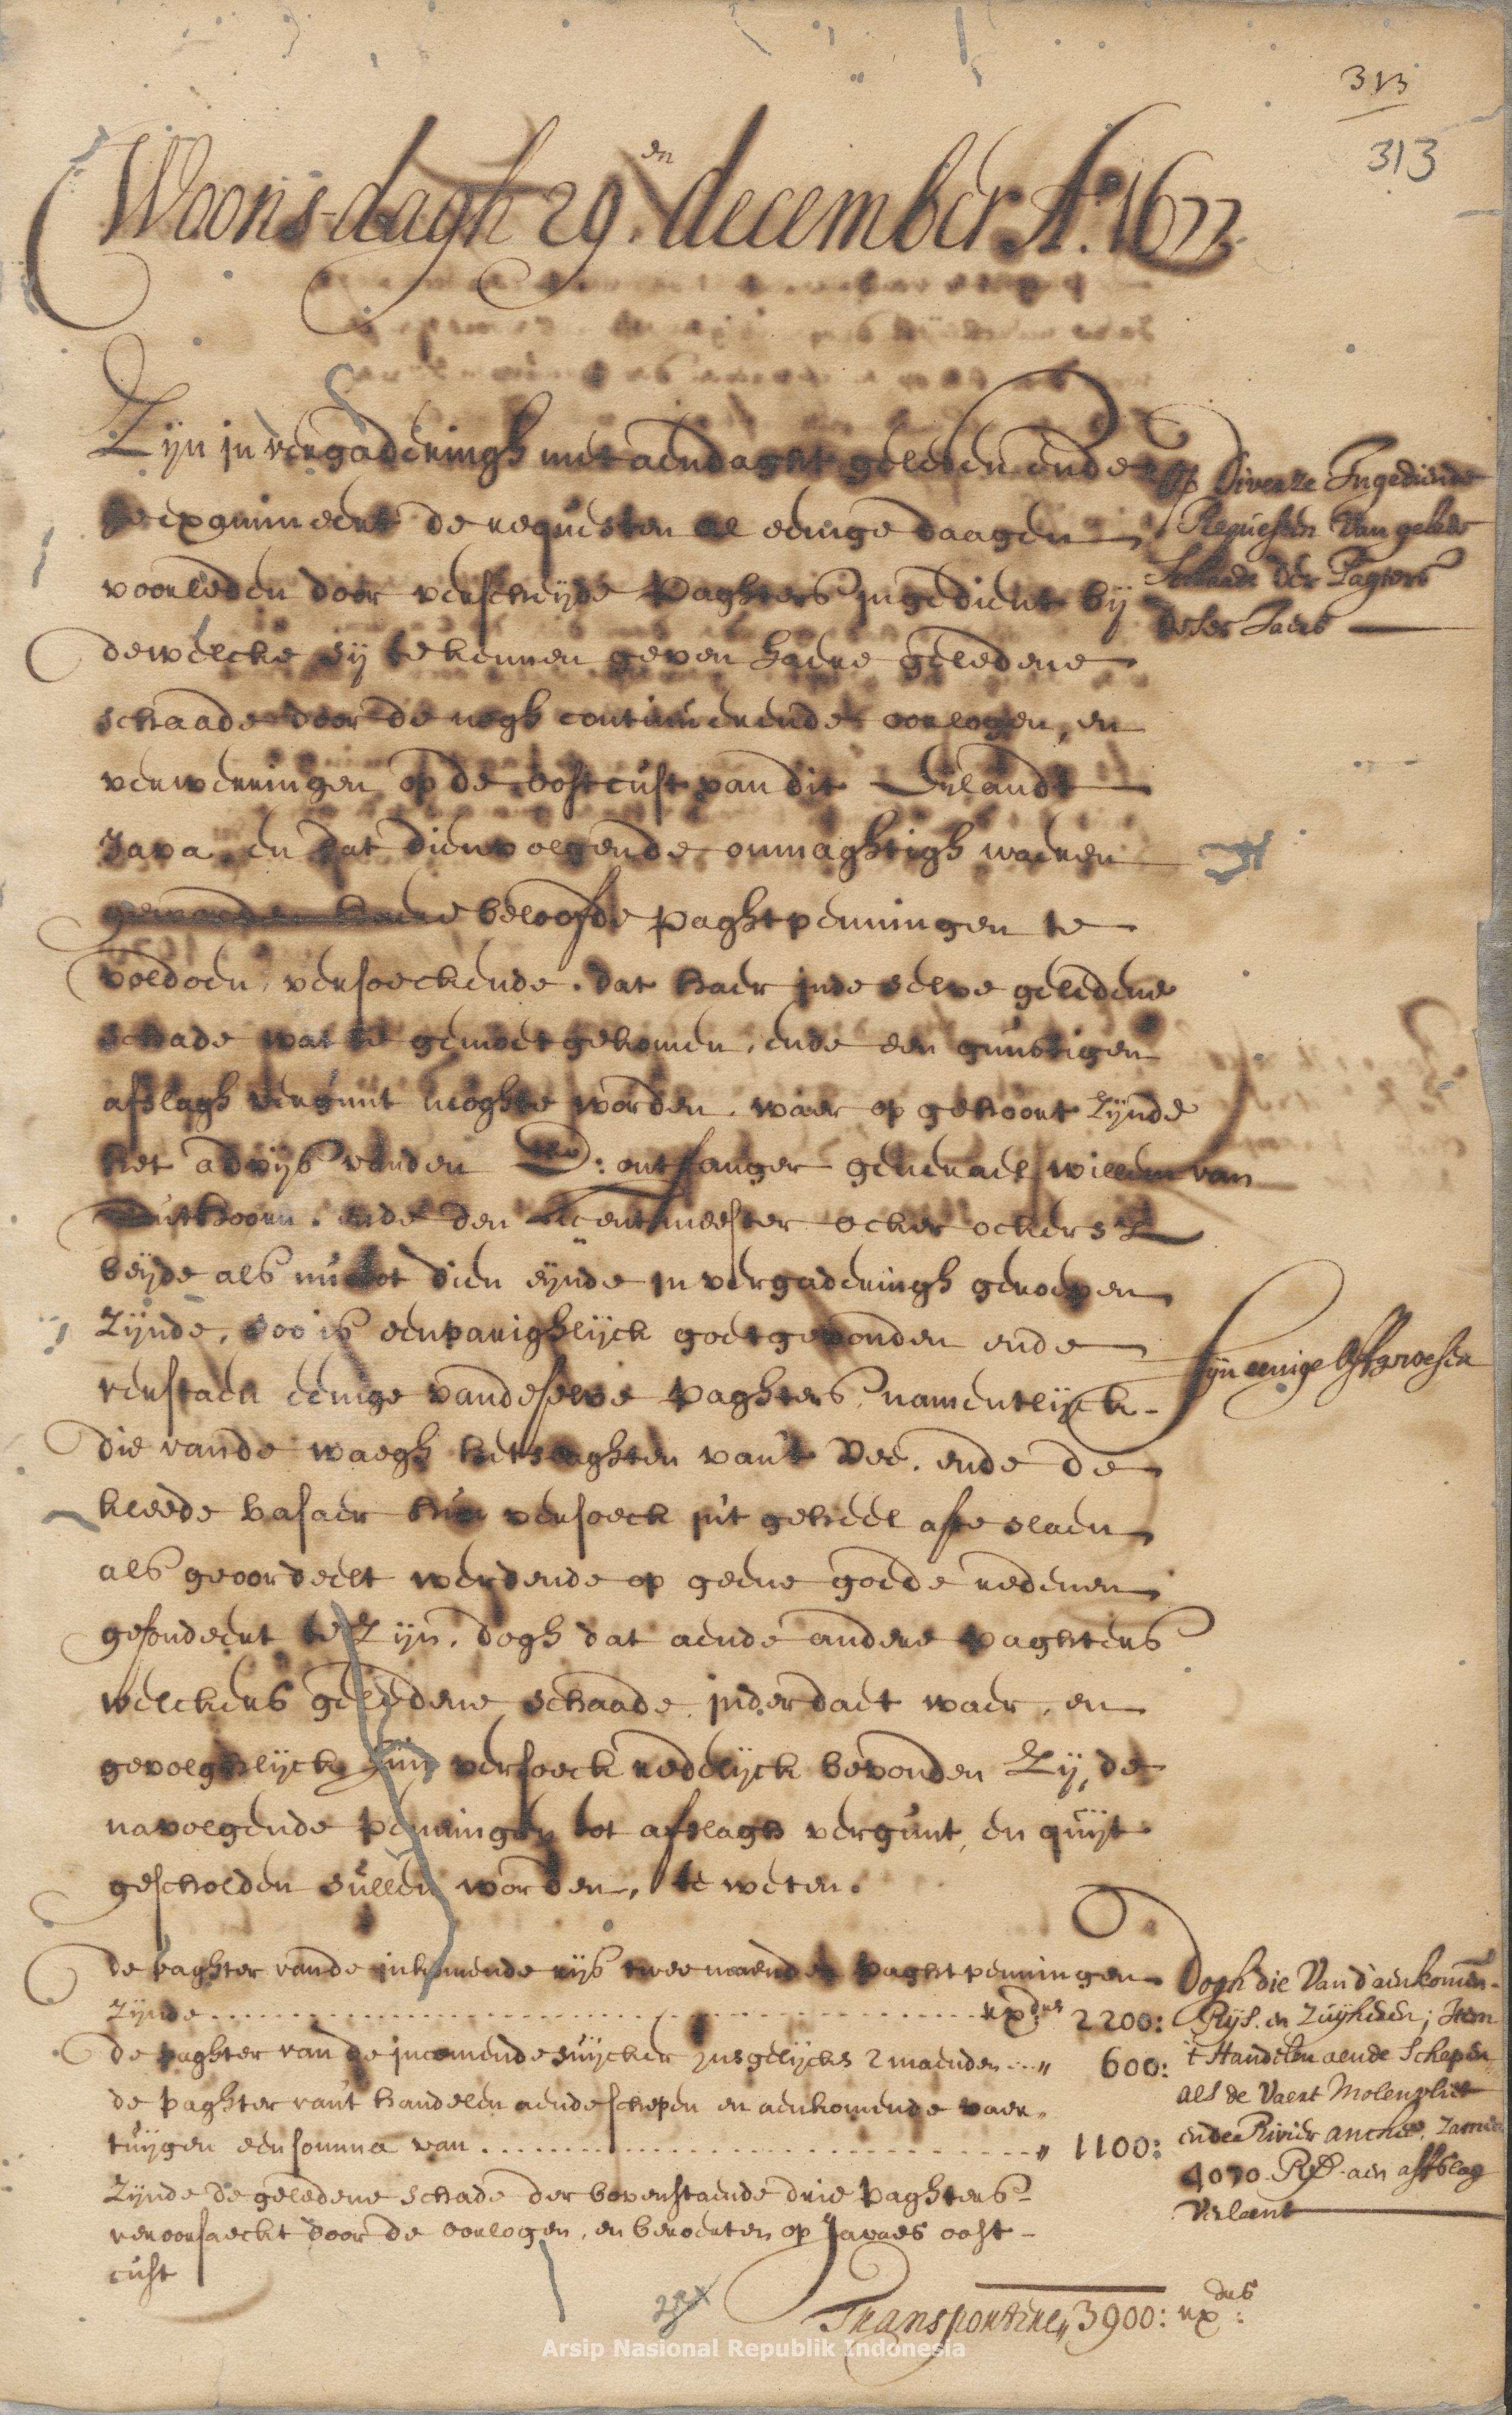 313
313
Woons-dagh 29.en december Ao. 1677.
Zijn in vergaderingh met aendaght gelesen ende
geexamineert de requesten al eenige daagen
voorleden door verscheijde Paghters ingedient bij
dewelcke sij te kennen geven haere geledene
schaade door de nogh continuerende oorlogen, en
verwerringen op de oostcust van dit Eijlandt
Java, en dat dienvolgende onmaghtigh waeren
geworden haere beloofde paghtpenningen te
voldoen, versoeckende dat haer inde selve geledene
schade wat te gemoet gekomen, ende een gunstigen
afslagh vergunt moghte worden, waer op gehoort zijnde
het advijs vanden E: ontfanger generael willem van
Outhoorn, ende den Licentmeester ocker ockersz
beijde als nu tot dien eijnde in vergaderingh geroepen
zijnde, soo is eenparighlijck goetgevonden ende
verstaen eenige vandeselve Paghters, namentlijck
die vande waegh het slaghten van't Vee, ende de
kleede basaer hun versoeck int geheel afte slaen
als geoordeelt werdende op geene goede redenen
gefondeert te zijn, dogh dat aende andere Paghters
welckers geledene schaade inderdaet waer, en
gevolghlijck hun versoeck redelijck bevonden zij, de
navolgende penningen tot afslagh vergunt, en quijt
gescholden sullen worden, te weten.
de Paghter vande inkomende rijs twee maenden Paghtpenningen
zijnde ... rxds 2200:
de Paghter van de incomende suijcker insgelijcks 2 maenden ... „ 600:
de Paghter van't handelen aende schepen en aenkomende vaer-
tuijgen een somma van ... „ 1100:
zijnde de geledene schade der bovenstaende drie Paghters
veroorsaeckt door de oorlogen, en beroerten op Javaes oost-
cust
Transportere „ 3900: rxds:
Op Diverze Ingediende
Requesten Van gelede
Schaade der Pagters
deses Jaers
Sijn eenige Affgewesen
Dogh die Van d'aenkomen-
Rijs. en Zuijkeren; Item
't Handelen aende Schepen
als de Vaert Molenvliet
ende Rivier anckee, zamen
4070 Rds. aen affslag
Verleent
Arsip Nasional Republik Indonesia